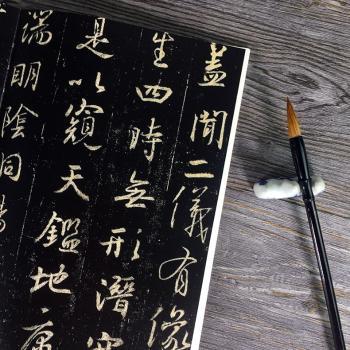 蓋聞二儀有像
生四時無形潛寒
是以窺天鑑地庸
端明陰洞陽